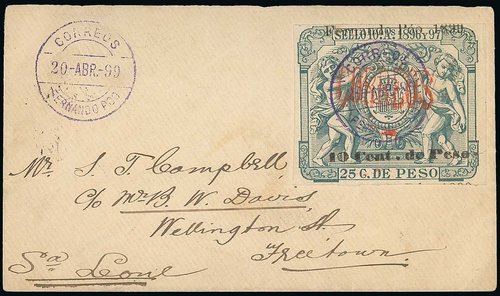 CORREOS
20-ABR.-99
FERNANDO POO
Fernando Póo, 1899
SELLO 10.º A. 1896 Y 97
CORREOS
10 Cent. de Peso
25 C. DE PESO
Mr. S. T. Campbell
c/o Mr B. W. Davis
Wellington St.
Freetown.
Sa Leone